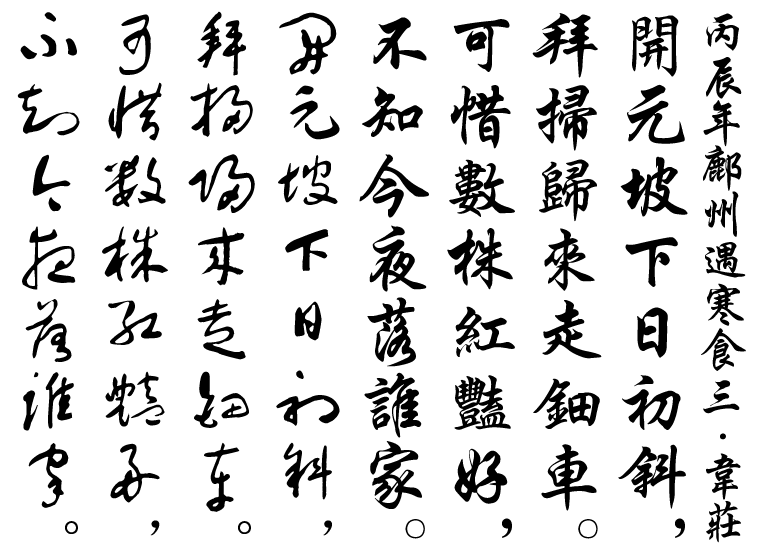 丙辰年鄜州遇寒食三·韋莊
開元坡下日初斜，
拜掃歸來走鈿車。
可惜數株紅豔好，
不知今夜落誰家。
开元坡下日初斜，
拜扫归来走钿车。
可惜数株红艳好，
不知今夜落谁家。